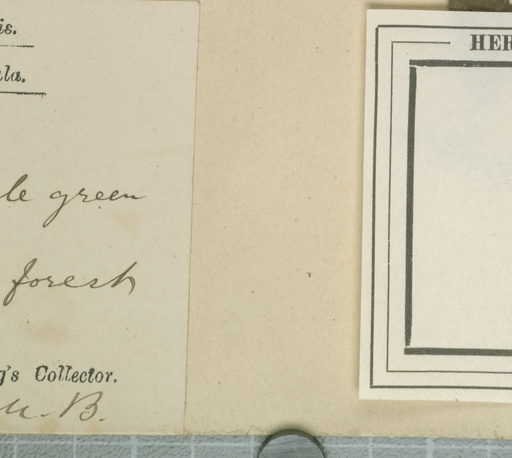 is.
ula.
HER
le green
forest
g's Collector.
B.